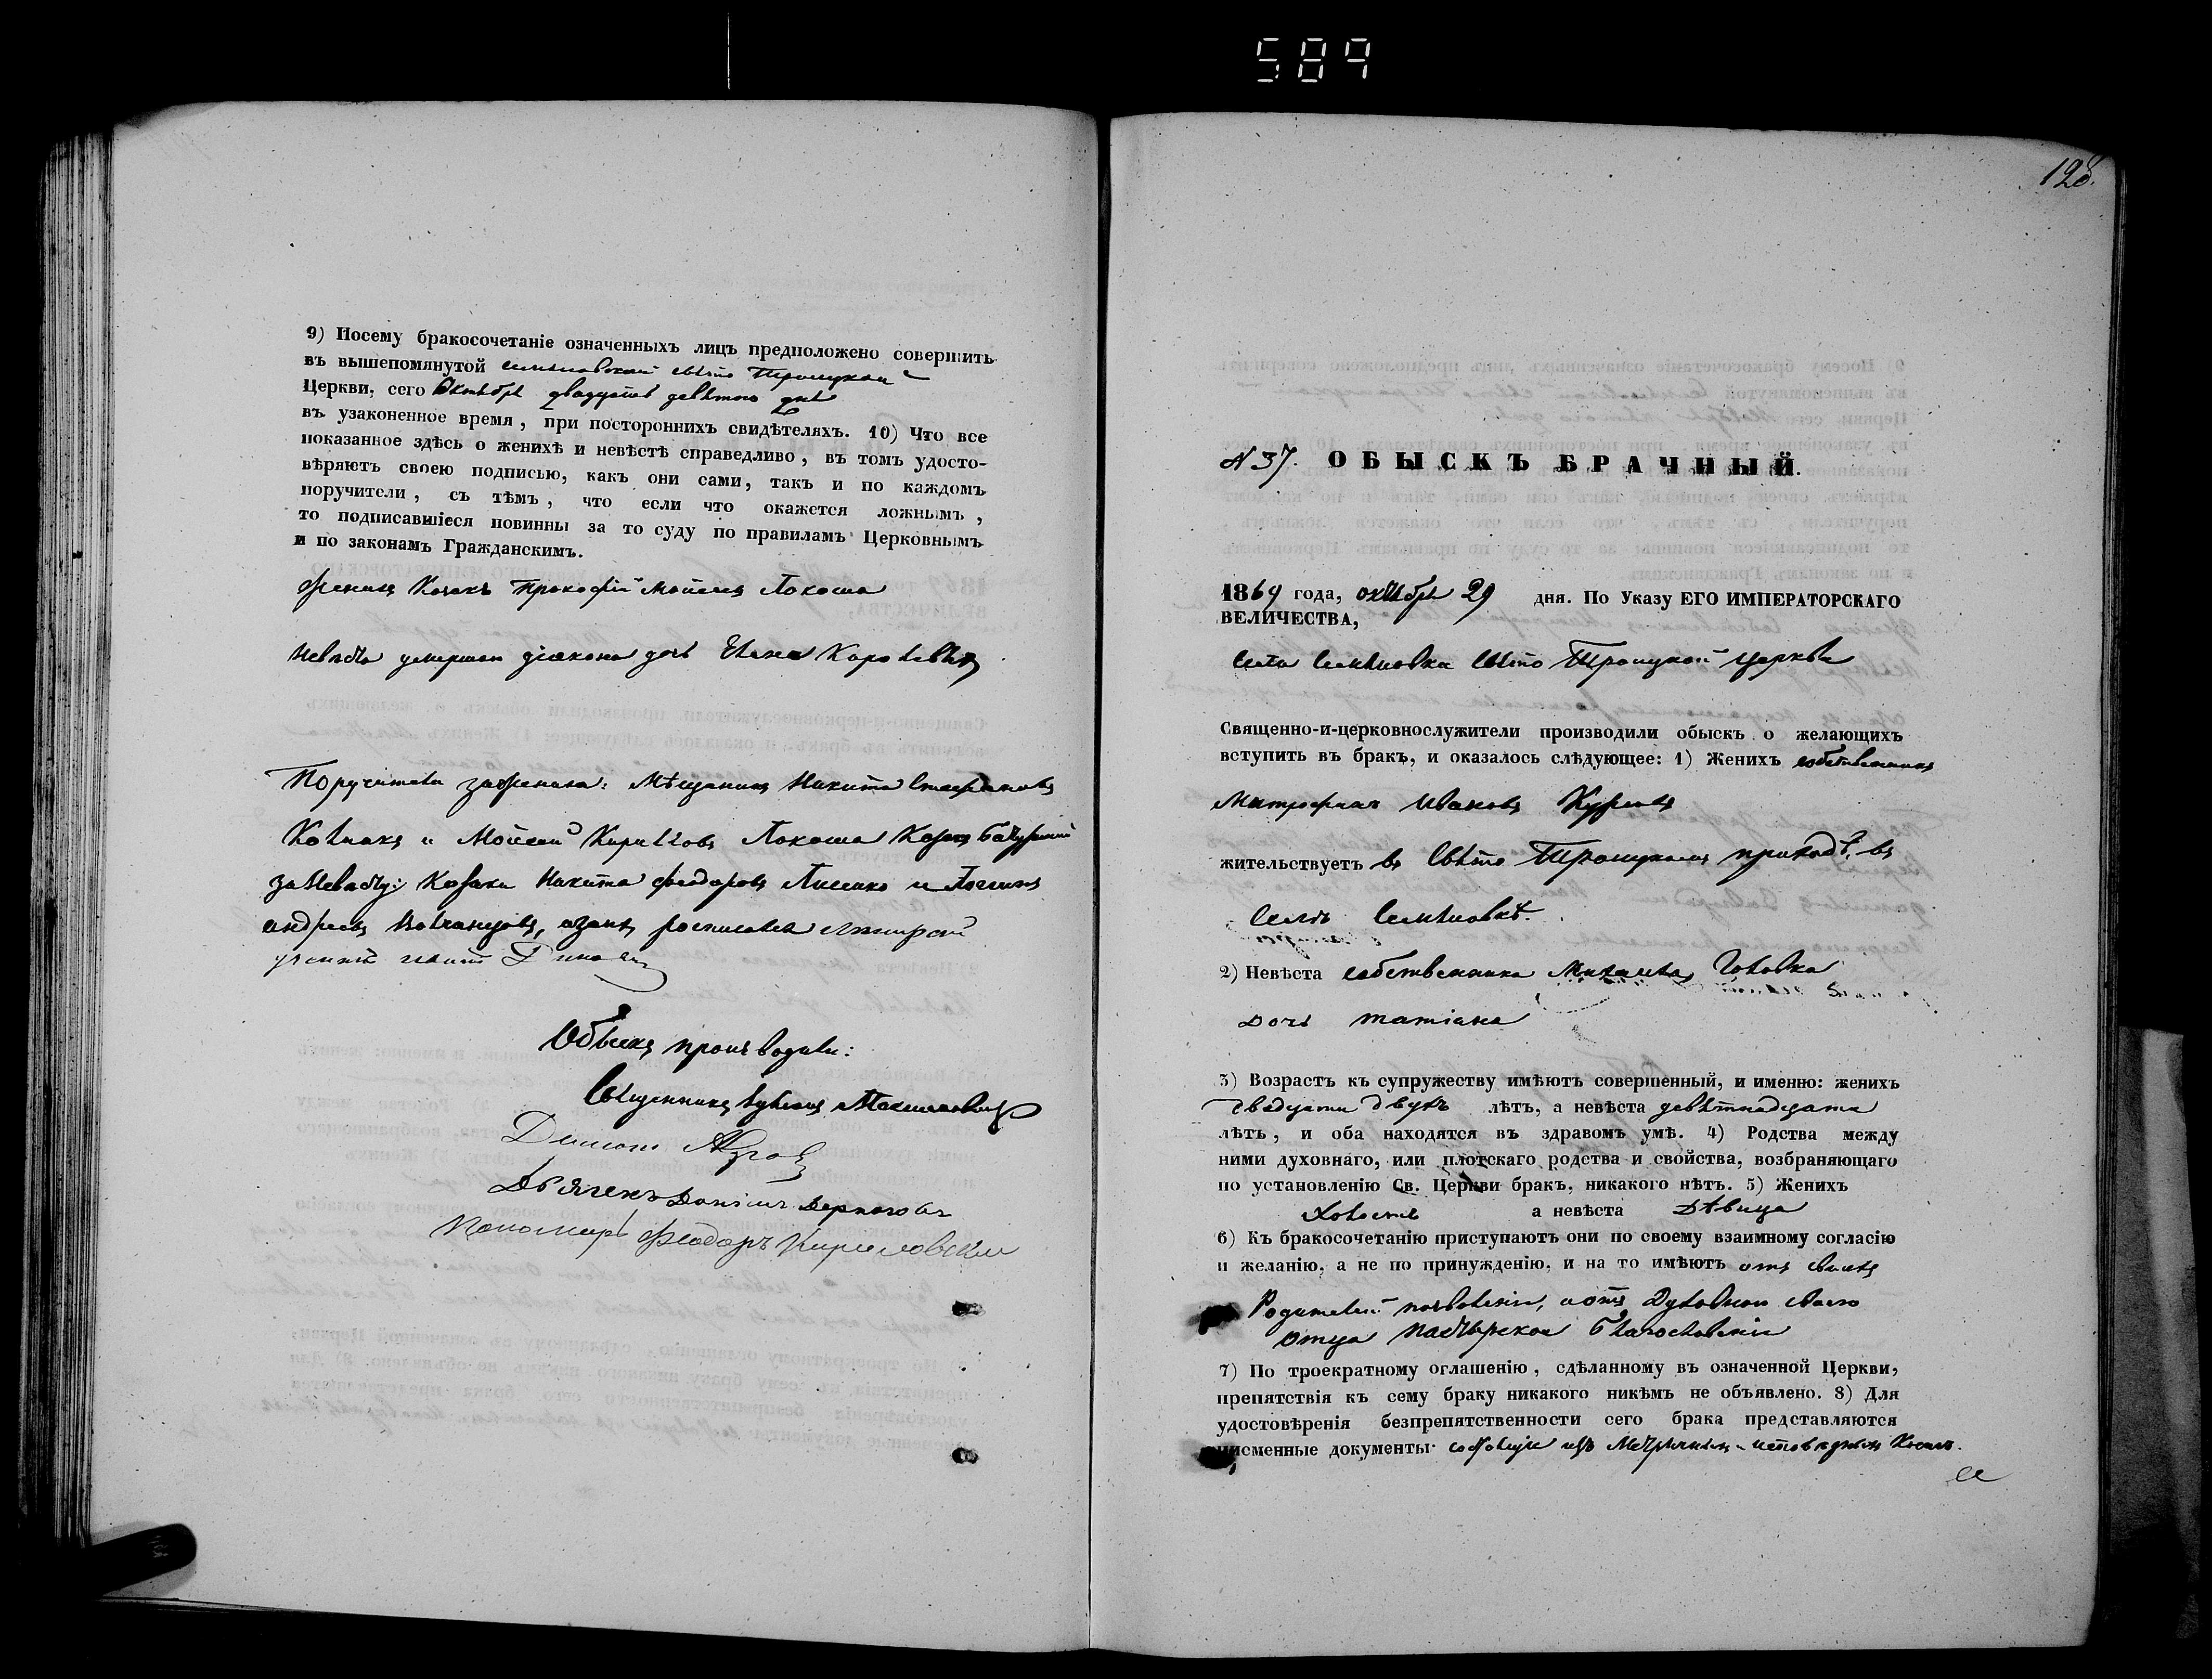 589
9) Посему бракосочетаніе означенныхъ лицъ предположено совершить
въ вышепомянутой Свято Троицкой
Церкви, сего Октября двадцать девятого дня
въ узаконенное время, при постороннихъ свидѣтеляхъ. 10) Что все
показанное здѣсь о женихѣ и невѣстѣ справедливо, въ томъ удосто-
вѣряютъ своею подписью, какъ они сами, такъ и по каждомъ
поручители, съ тѣмъ, что если что окажется ложнымъ,
то подписавшіеся повинны за то суду по правиламъ Церковнымъ
и по законамъ Гражданскимъ.
Женихъ Козакъ Прокофій Моисеевъ Локоша
Невѣста умершаго діакона дочь Елена
Поручители за жениха: Мѣщанинъ Никита Стефановъ
и Моисей Кириловъ Локоша Козакъ
за Невѣсту: Козаки Никита Феодоровъ Лисенко и
Андреевъ росписался
Обыскъ производили:
Священникъ
Дьячекъ Даніилъ
Пономарь Феодоръ Кириловскій
128.
N 37. ОБЫСКЪ БРАЧНЫЙ.
1864 года, октября 29 дня. По Указу ЕГО ИМПЕРАТОРСКАГО
ВЕЛИЧЕСТВА,
села Семяновки Свято Троицкой церкви
Священно-и-церковнослужители производили обыскъ о желающихъ
вступить въ бракъ, и оказалось слѣдующее: 1) Женихъ собственникъ
Митрофанъ Ивановъ
жительствуетъ въ Свято Троицкомъ приходѣ, въ
селѣ Семяновкѣ.
2) Невѣста собственника Михаила Головка
дочь Татіана
3) Возрастъ къ супружеству имѣютъ совершенный, и именно: женихъ
двадцати двухъ лѣтъ, а невѣста девятнадцати
лѣтъ, и оба находятся въ здравомъ умѣ. 4) Родства между
ними духовнаго, или плотскаго родства и свойства, возбраняющаго
по установленію Св. Церкви бракъ, никакого нѣтъ. 5) Женихъ
холостъ а невѣста дѣвица
6) Къ бракосочетанію приступаютъ они по своему взаимному согласію
и желанію, а не по принужденію, и на то имѣютъ отъ своихъ
Родителей позволеніе, и отъ Духовнаго своего
отца пастырское благословеніе
7) По троекратному оглашенію, сдѣланному въ означенной Церкви,
препятствія къ сему браку никакого никѣмъ не объявлено. 8) Для
удостовѣренія безпрепятственности сего брака представляются
письменные документы: изъ Метричныхъ и исповѣдныхъ книгъ.